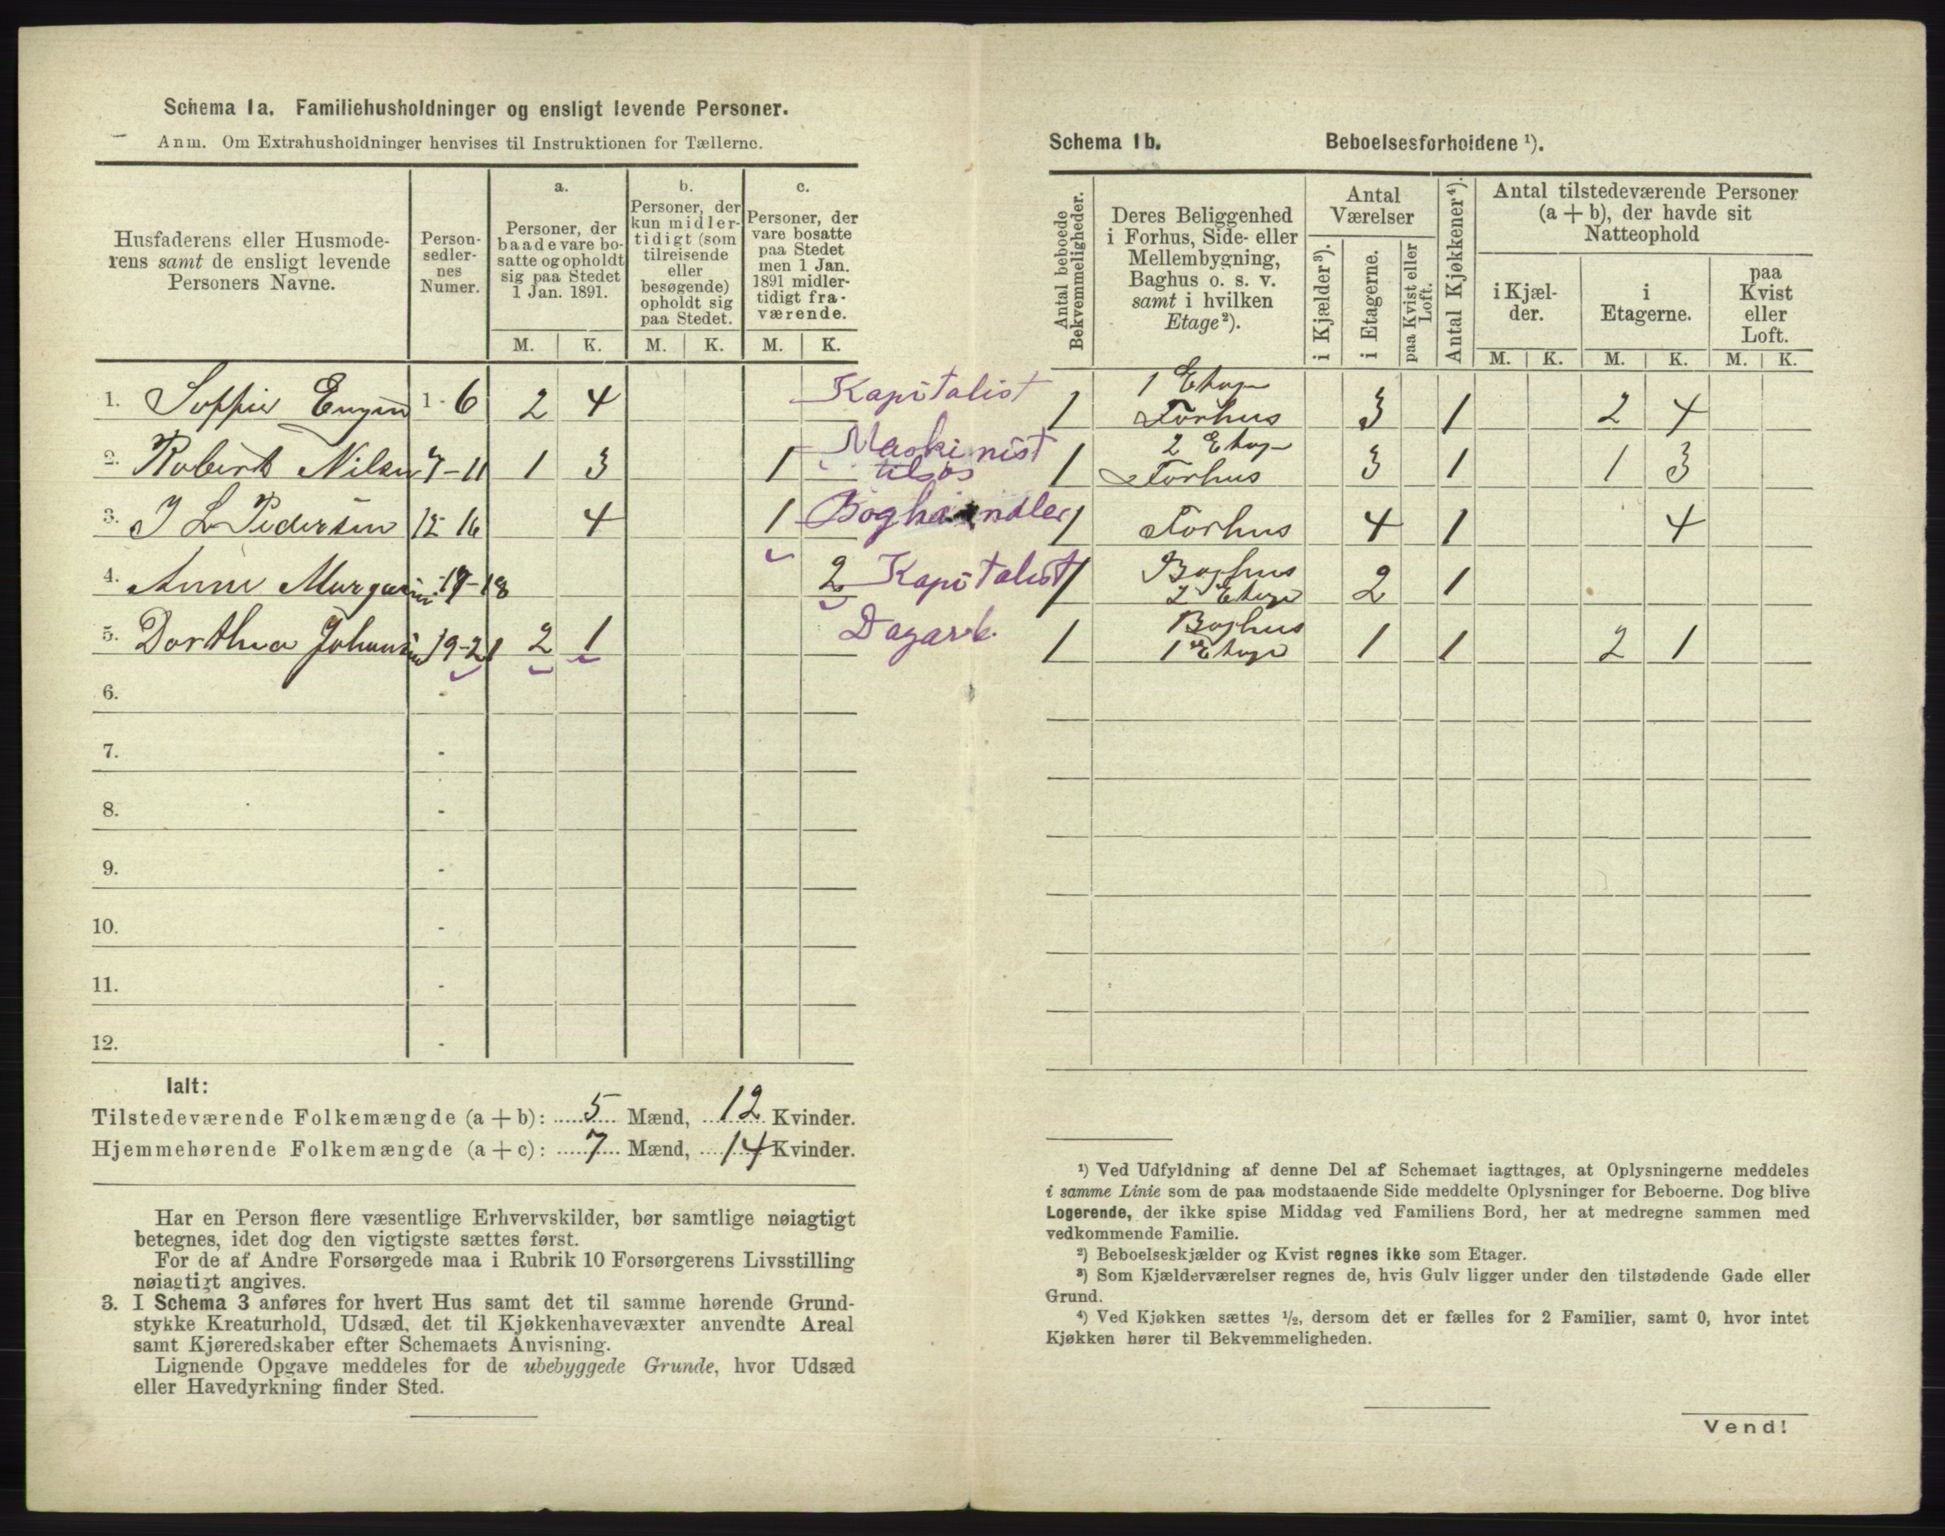 Schema 1a. Familiehusholdninger og ensligt levende Personer.
Anm. Om Extrahusholdninger henvises til Instruktionen for Tællerne.
Husfaderens eller Husmode-
rens samt de ensligt levende
Personers Navne.
Person-
sedler-
nes
Numer.
a.
Personer, der
baade vare bo-
satte og opholdt
sig paa Stedet
1 Jan. 1891.
b.
Personer, der
kun midler-
tidigt (som
tilreisende
eller
besøgende)
opholdt sig
paa Stedet.
c.
Personer, der
vare bosatte
paa Stedet
men 1 Jan.
1891 midler-
tidigt fra-
værende.
M. K. M. K. M. K.
1. 1 - 6 2 4 Kapitalist
2. Robert Nilsen 7-11 1 3 1 Maskinist
tilsøs
3. J L Pedersen 12-16 4 1 Boghandler
4. Anne 17-18 2 Kapitalist
5. Dorthea Johansen 19-21 2 1 Dagarb.
6. -
7. -
8. -
9. -
10. -
11. -
12. -
Ialt:
Tilstedeværende Folkemængde (a + b): 5 Mænd, 12 Kvinder.
Hjemmehørende Folkemængde (a + c): 7 Mænd, 14 Kvinder.
Har en Person flere væsentlige Erhvervskilder, bør samtlige nøiagtigt
betegnes, idet dog den vigtigste sættes først.
For de af Andre Forsørgede maa i Rubrik 10 Forsørgerens Livsstilling
nøiagtigt angives.
3. I Schema 3 anføres for hvert Hus samt det til samme hørende Grund-
stykke Kreaturhold, Udsæd, det til Kjøkkenhavevæxter anvendte Areal
samt Kjøreredskaber efter Schemaets Anvisning.
Lignende Opgave meddeles for de ubebyggede Grunde, hvor Udsæd
eller Havedyrkning finder Sted.
Schema 1b. Beboelsesforholdene ¹).
Antal beboede
Bekvemmeligheder.
Deres Beliggenhed
i Forhus, Side- eller
Mellembygning,
Baghus o. s. v.
samt i hvilken
Etage²).
Antal
Værelser
i Kjælder³).
i Etagerne.
paa Kvist eller
Loft.
Antal Kjøkkener⁴).
Antal tilstedeværende Personer
(a + b), der havde sit
Natteophold
i Kjæl-
der.
i
Etagerne.
paa
Kvist
eller
Loft.
M. K. M. K. M. K.
1 Etage
1 Forhus 3 1 2 4
2 Etage
1 Forhus 3 1 1 3
1 Forhus 4 1 4
Baghus
1 2 Etage 2 1
Baghus
1 1 Etage 1 1 2 1
¹) Ved Udfyldning af denne Del af Schemaet iagttages, at Oplysningerne meddeles
i samme Linie som de paa modstaaende Side meddelte Oplysninger for Beboerne. Dog blive
Logerende, der ikke spise Middag ved Familiens Bord, her at medregne sammen med
vedkommende Familie.
²) Beboelseskjælder og Kvist regnes ikke som Etager.
³) Som Kjælderværelser regnes de, hvis Gulv ligger under den tilstødende Gade eller
Grund.
⁴) Ved Kjøkken sættes ½, dersom det er fælles for 2 Familier, samt 0, hvor intet
Kjøkken hører til Bekvemmeligheden.
Vend!